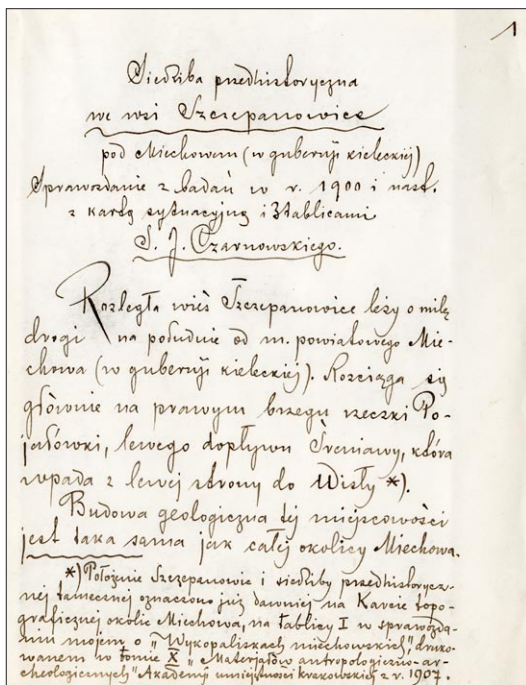 1
Siedziba przedhistoryczna
we wsi Szczepanowice
pod Miechowem (w gubernji kieleckiej)
Sprawozdanie z badań w r. 1900 i nast.
z kartą sytuacyjną i 3 tablicami
S. J. Czarnowskiego.
Rozległa wieś Szczepanowice leży o milę
drogi na południe od m. powiatowego Mie-
chowa (w gubernji kieleckiej). Rozciąga się
głównie na prawym brzegu rzeczki Po-
jałówki, lewego dopływu Śreniawy, która
wpada z lewej strony do Wisły *).
Budowa geologiczna tej miejscowości
jest taka sama jak całej okolicy Miechowa.
*) Położenie Szczepanowic i siedziby przedhistorycz-
nej tamecznej oznaczono już dawniej na Karcie topo-
graficznej okolic Miechowa, na tablicy I w sprawozda-
niu mojem o „Wykopaliskach miechowskich" druko-
wanem w tomie X „Materjałów antropologiczno-ar-
cheologicznych" Akademji umiejętności krakowskiej z r. 1907.